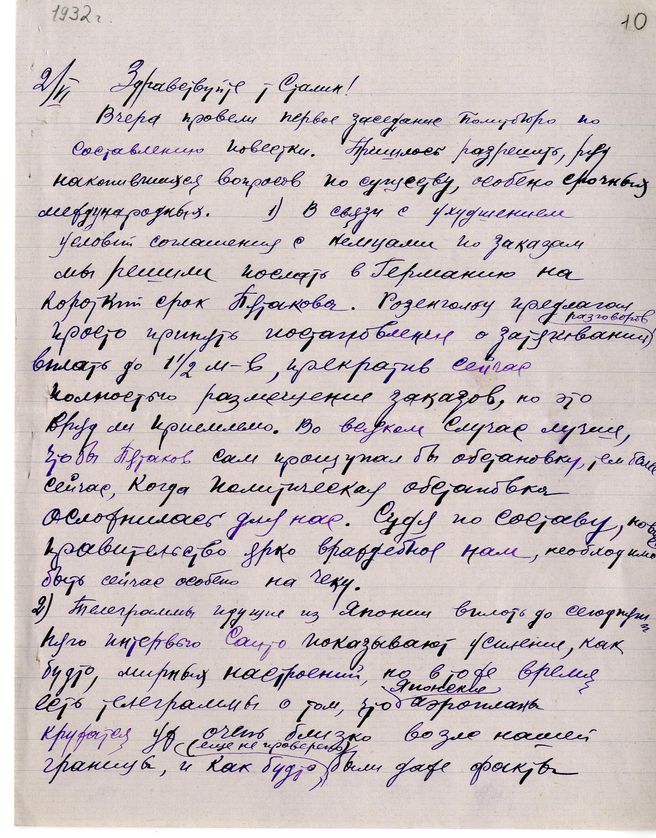 1932 г.
10
2/VI Здравствуйте т Сталин!
Вчера провели первое заседание Политбюро по
составлению повестки. Пришлось разрешить, ряд
накопившихся вопросов по существу, особено срочных
международных. 1) В связи с ухудшением
условий соглашения с немцами по заказам
мы решили послать в Германию на
короткий срок Пятакова. Розенгольц предлагал
разговоров
просто принять постановление о затягивании
вплоть до 1 1/2 м-в, прекратив сейчас
полностью размещение заказов, но это
вряд ли приемлемо. Во всяком случае лучше,
чтобы Пятаков сам прощупал бы обстановку, тем более
сейчас, когда политическая обстановка
осложнилась для нас. Судя по составу, новое
правительство ярко враждебное нам, необходимо
быть сейчас особено на чеку.
2) Телеграммы идущие из Японии вплоть до сегодняш-
няго интервью Саито показывают усиление, как
будто, мирных настроений, но в тоже время
Японские
есть телеграммы о том, что аэропланы
кружатся очень близко возле нашей
(еще не проверено)
границы, и как будто были даже факты